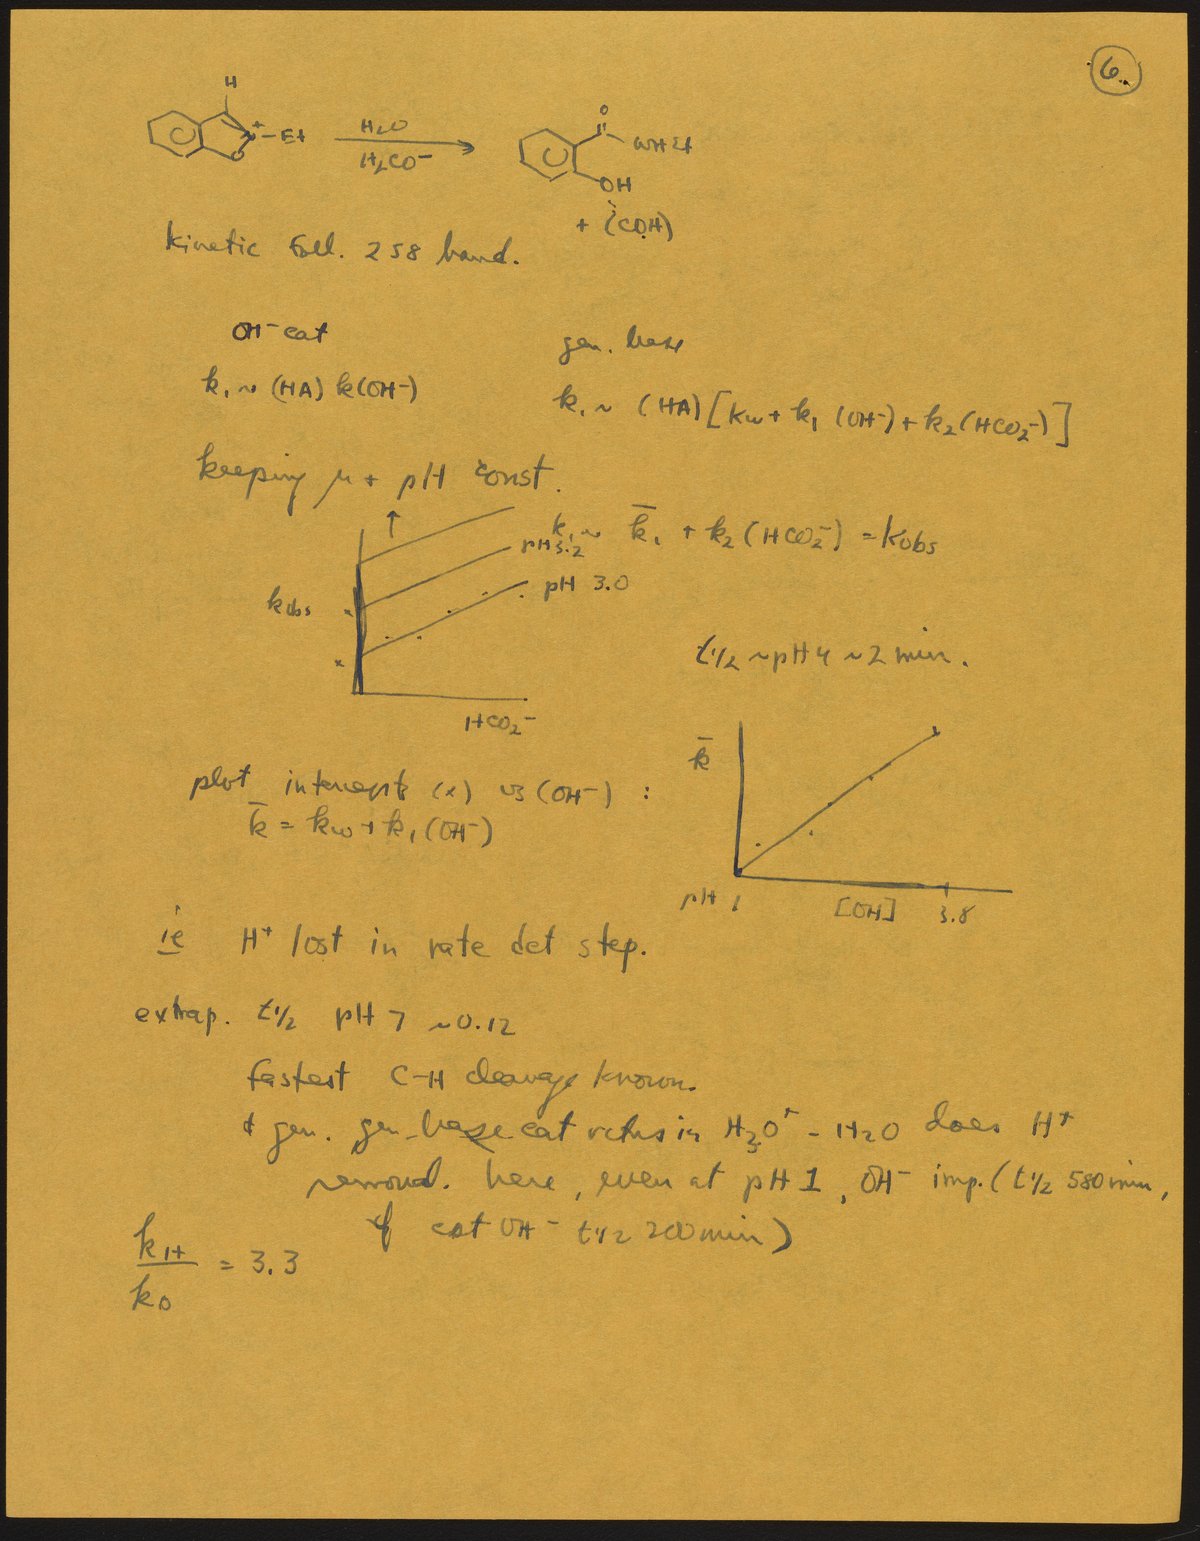 6.
H
+
N - Et
O
H2O
H2CO-
O
NHEt
OH
+ (COH)
kinetic foll. 258 band.
OH- cat
gen. base
k1 ~ (HA) k(OH-)
k1 ~ (HA) [kw + k1 (OH-) + k2 (HCO2-)]
keeping μ + pH const.
k1 ~ k̄1 + k2 (HCO2-) = kobs
pH 3.2
pH 3.0
kobs
x
x
HCO2-
t1/2 ~ pH 4 ~ 2 min.
plot intercepts (x) vs (OH-) :
k̄ = kw + k1 (OH-)
k̄
pH 1
[OH]
3.8
ie H+ lost in rate det step.
extrap. t1/2 pH 7 ~0.12
fastest C-H cleavage known.
+ gen. gen-base cat rctns in H3O+ - H2O does H+
removal. here, even at pH 1, OH- imp. (t1/2 580 min,
if cat OH- t1/2 200 min)
kH/kD = 3.3